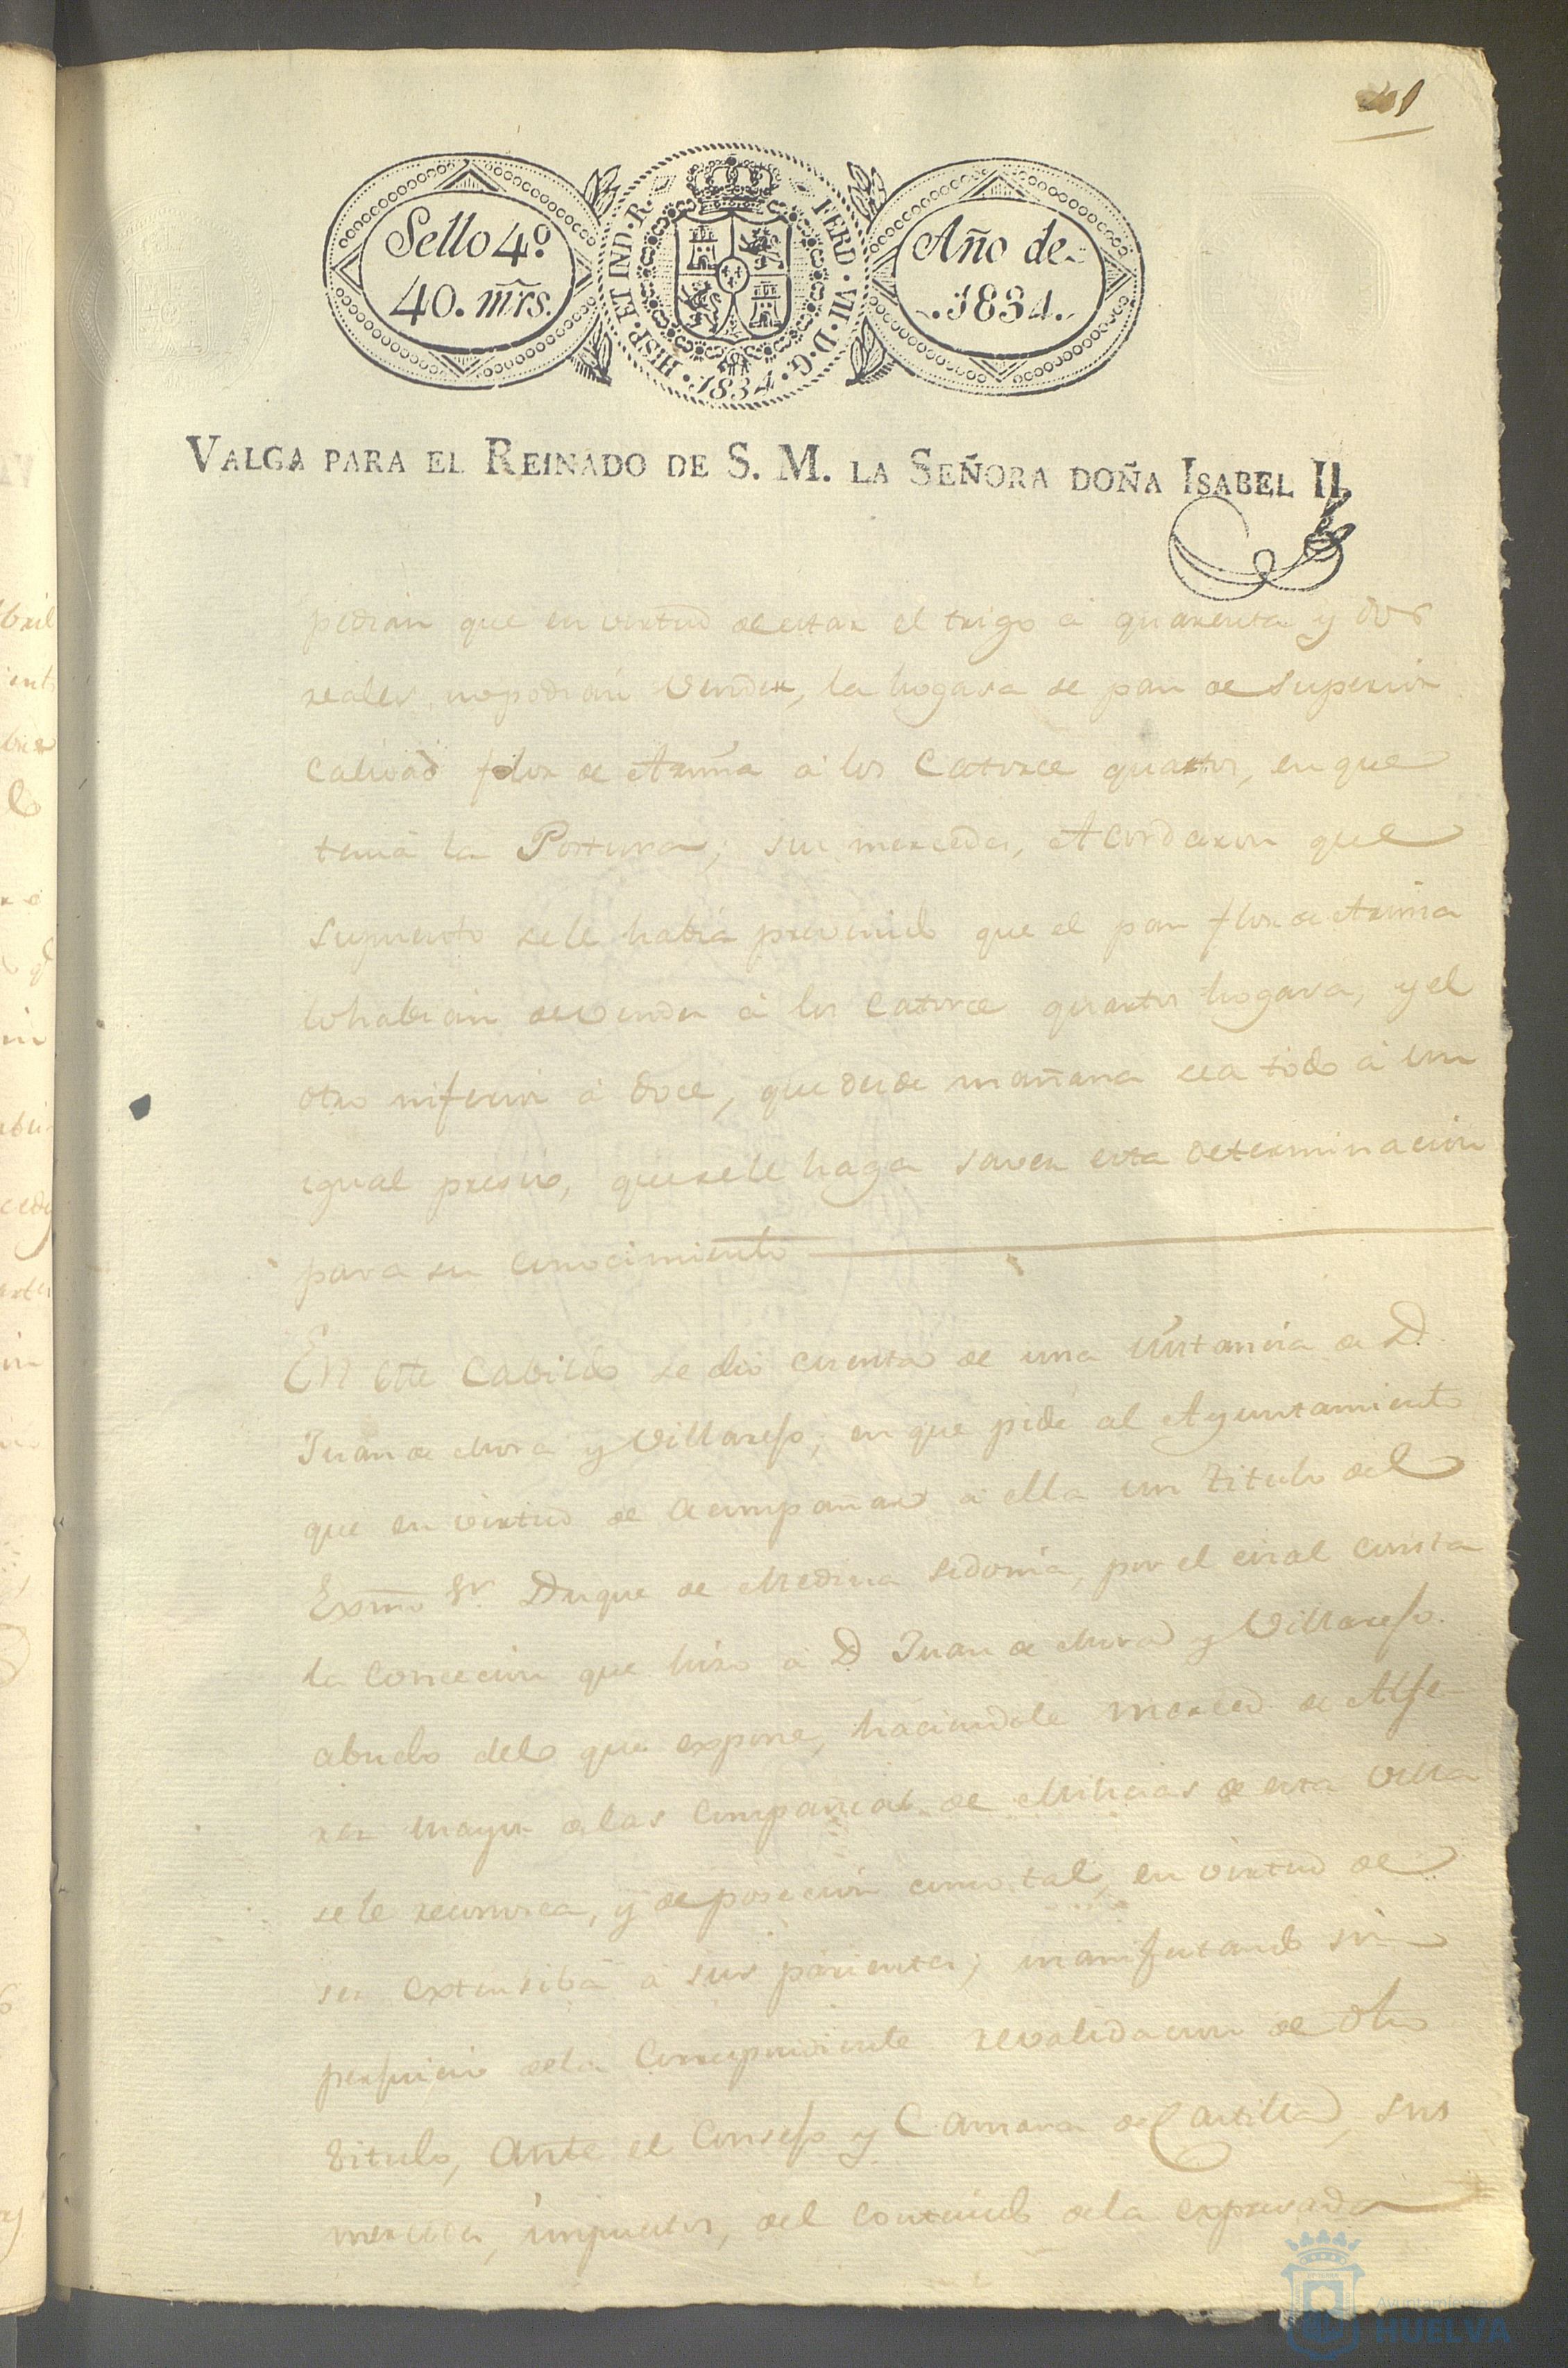 Sello 4º
40. mrs.
HISP. ET IND. R.
FERD. VII. D. G.
.1834.
Año de
.1834.
VALGA PARA EL REINADO DE S. M. LA SEÑORA DOÑA ISABEL II.
pedian que en virtud de estar el trigo á quarenta y dos
reales, no podian vender, la hogasa de pan de superior
calidad flor de Arina á los Catorce quartos, en que
tenia la Postura; sus mercedes, Acordaron que
supuesto sele habia prevenido que el pan flor de Arina
lo habian de vender á los Catorce quartos hogasa, y el
otro inferior á doce, que desde mañana sea todo á un
igual presio, que sele haga saver esta determinacion
para su conocimiento
En este Cabildo se dio cuenta de una instancia de D.
Juan de Mora y Villarejo, en que pide al Ayuntamiento
que en virtud de acompañar á ella un titulo del
Exmo Sr. Duque de Medina Sidonia, por el cual consta
la concecion que hiso á D Juan de Mora y Villarejo.
abuelo del que expone, haciendole merced de Alfe-
rez mayor de las Compañias de Milicias de esta Villa
se le reconosca, y de posecion como tal, en virtud de
ser extensiba á sus parientes; manifestando sin
perjuicio dela Correspondiente revalidacion de dho
titulo, Ante el Consejo y Camara de Castilla, sus
mercedes, impuestos, del contenido dela expresada
Ayuntamiento de
HUELVA